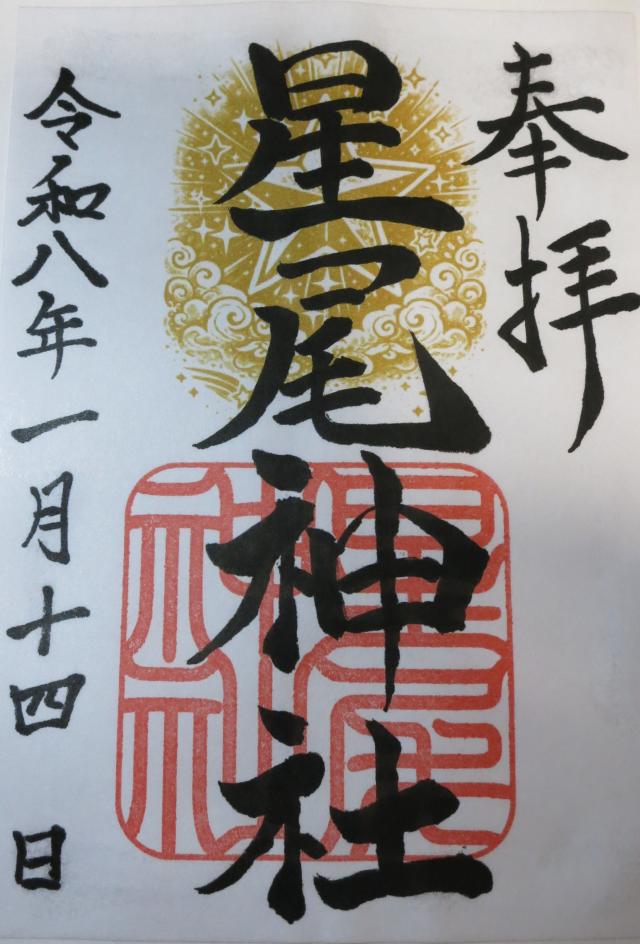 奉拝
星尾神社
令和八年一月十四日